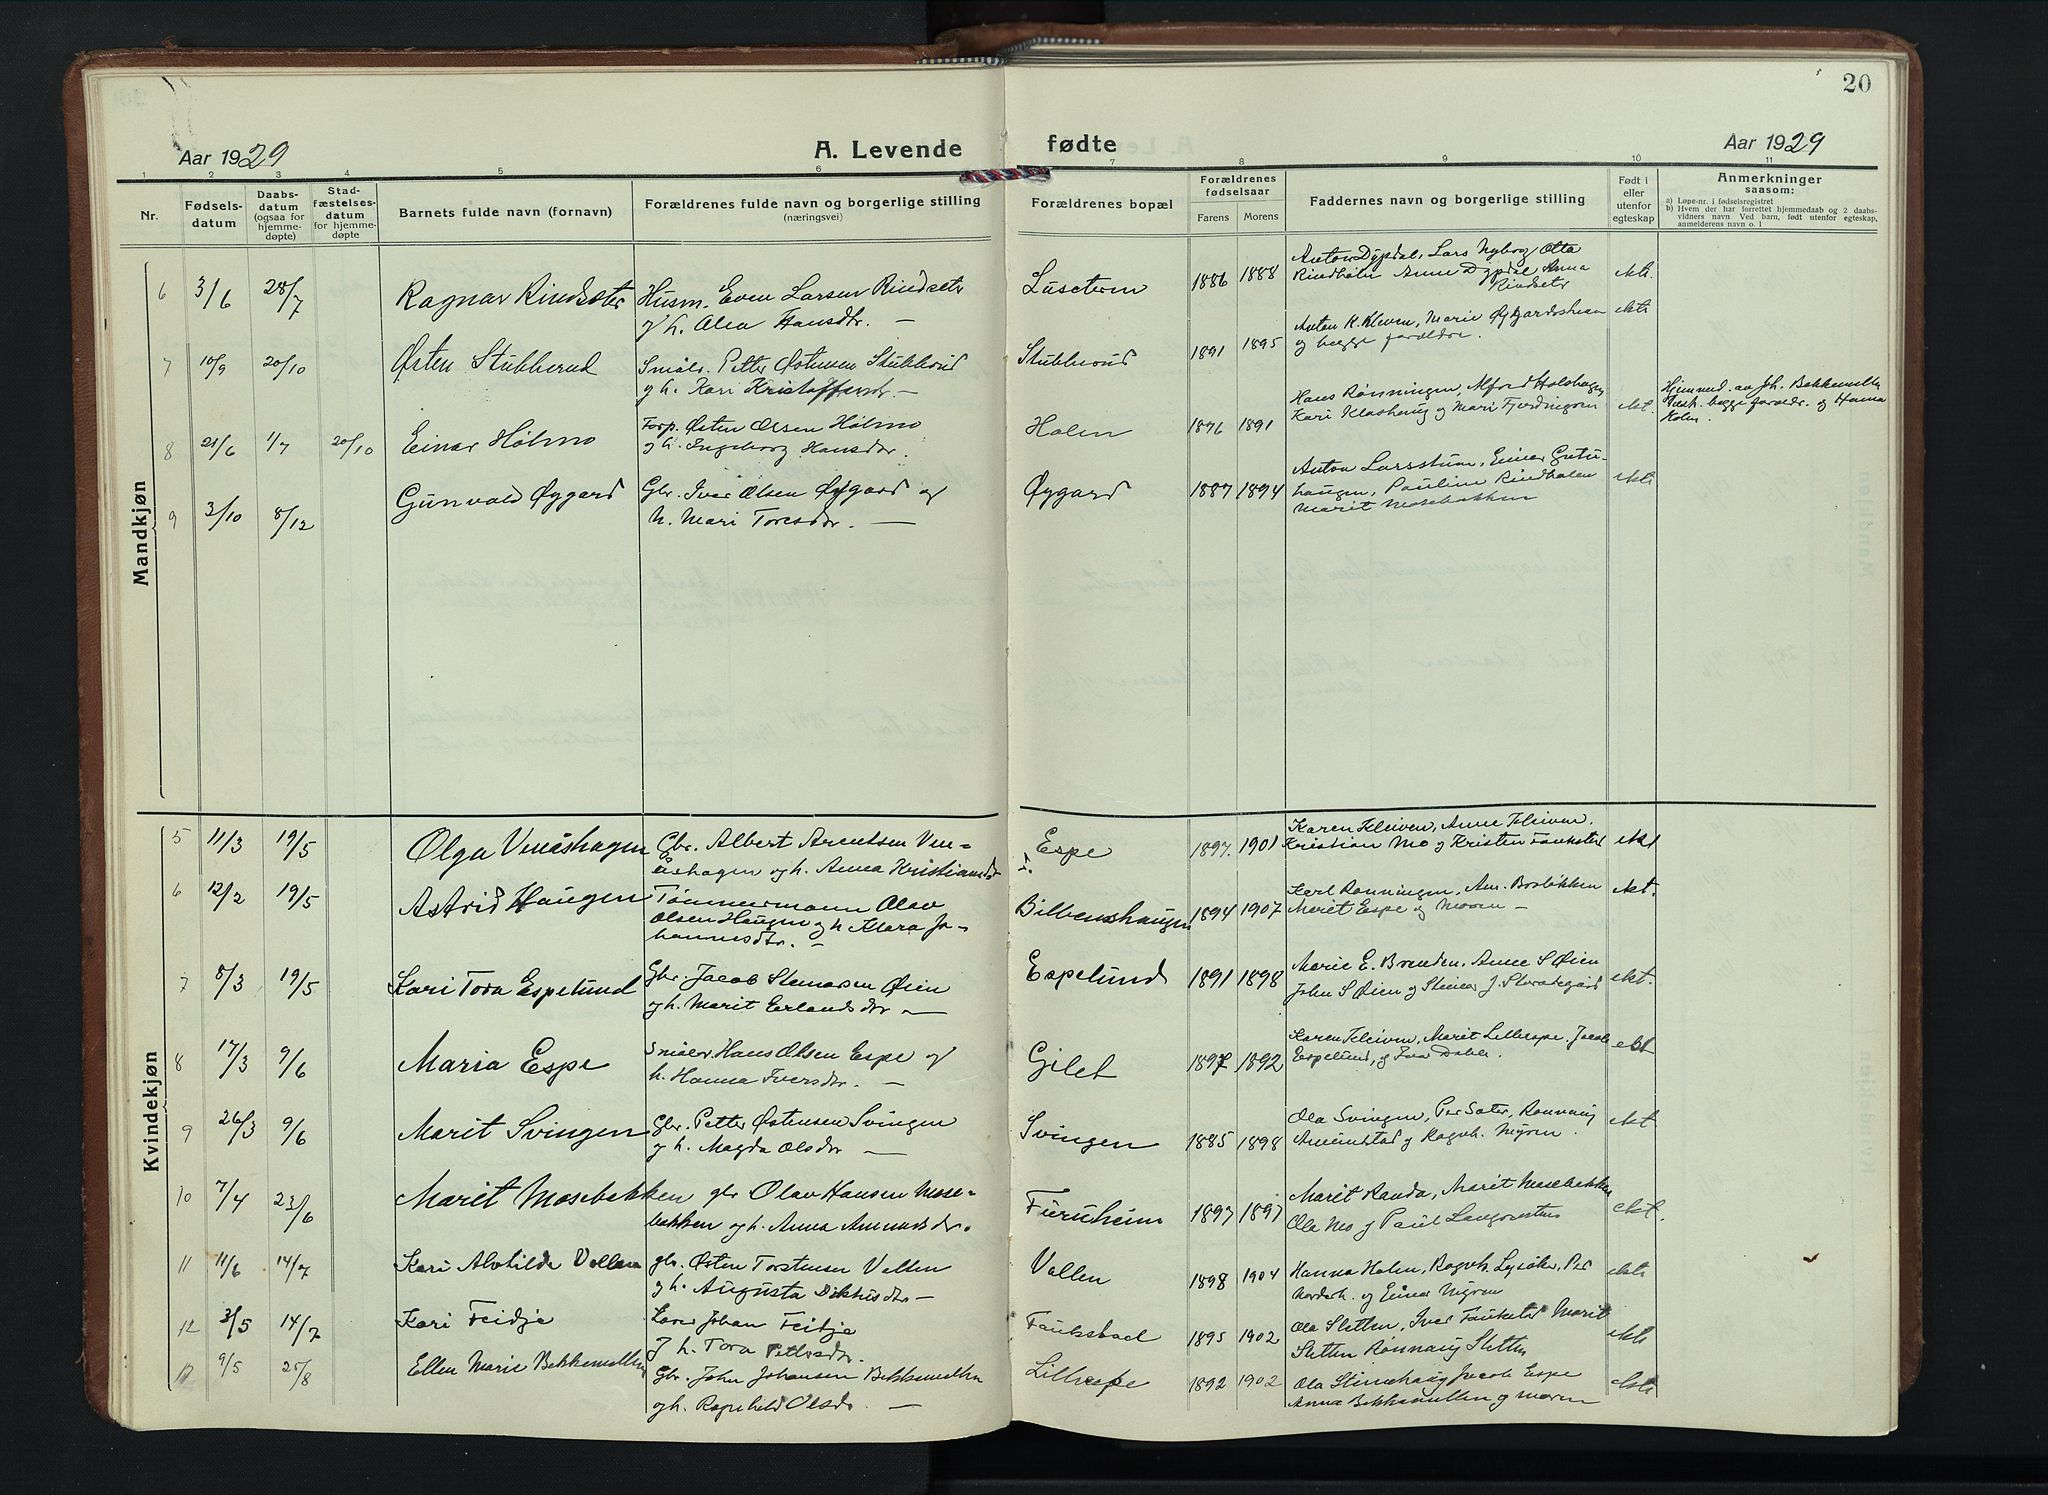 20
Aar 1929
A. Levende fødte
Aar 1929
1 2 3 4 5 6 7 8 9 10 11
Nr.
Fødsels-
datum
Daabs-
datum
(ogsaa for
hjemme-
døpte)
Stad-
fæstelses-
datum
for hjemme-
døpte
Barnets fulde navn (fornavn)
Forældrenes fulde navn og borgerlige stilling
(næringsvei)
Forældrenes bopæl
Forældrenes
fødselsaar
Farens
Morens
Faddernes navn og borgerlige stilling
Født i
eller
utenfor
egteskap
Anmerkninger
saasom:
a) Løpe-nr. i fødselsregistret
b) Hvem der har forrettet hjemmedaab og 2 daabs-
vidners navn. Ved barn, født utenfor egteskap,
anmelderens navn o. l
Mandkjøn
6 3/6 28/7 Ragnar Rindsæter Husm. Even Larsen Rindseter
og h. Olea Hansdtr. —
Luseteren 1886 1888 Anton Dypdal, Lars Nyborg, Otta
Rindhølen Anne Dypdal Anna
Rindseter
ekte.
7 10/9 20/10 Østen Stubberud Smålr. Petter Østensen Stubberud
og h. Kari Kristoffersdtr. —
Stubberud 1891 1895 Anton K. Kleven, Marie Øygardsheim
og begge forældre.
ekte
8 21/6 1/7 20/10 Einar Holmo Forp. Østen Olsen Holmo
og h. Ingeborg Hansdtr.
Holen 1876 1891 Hans Rønningen, Alfred Holshagen
Kari Klashaug og Mari Fjerdingren
ekt.
Hjemmed. av Joh. Bekkemellem
begge forældr. og Hanna
Holen.
9 3/10 8/12 Gunvald Øygard Gbr. Iver Olsen Øygard og
h. Mari Toresdtr. —
Øygard 1887 1894 Anton Larsstuen, Einar Gretu-
haugen, Pauline Rindhølen
Marit Mosebakken
ekte
Kvindekjøn
5 11/3 19/5 Olga Venåshagen Gbr. Albert Arentsen Ven-
åshagen og h. Anna Kristiansdtr
Espe 1897. 1901 Karen Kleiven, Anne Kleiven.
Kristian Mo og Kristen Faukstad
ekt
6 12/2 19/5 Astrid Haugen Tømmermann Olav
Olsen Haugen og h Klara Jo-
hannesdtr. —
Bilbenshaugen 1894 1907 Karl Rønningen, Am. Brobakken
Marit Espe og Moren —
ekt.
7 8/3 19/5 Kari Tora Espelund Gbr. Jacob Stenersen Øien
og h. Marit Erlandsdtr —
Espelund 1891 1898 Marie E. Brenden, Anne S Øien
John S Øien og Steiner J. Storødegård
ekt.
8 17/3 9/6 Maria Espe Smålr Hans Olsen Espe og
h. Hanna Iversdtr. —
Gilet 1897 1892 Karen Kleiven, Marit Lillespe, Jacob
Espelund, og Tora Dahle.
ekt
9 26/3 9/6 Marit Svingen Gbr. Petter Østensen Svingen
og h. Magda Olsdtr —
Svingen 1885 1898 Ola Svingen, Per Sater, Rønnaug
Amundstad og Ragnh. Myren.
ekt
10 7/4 23/6 Marit Mosebakken gbr Olav Hansen Mose-
bakken og h. Anna Amundsdtr.
Furuheim 1897 1897 Marit Randa, Marit Mosebakken
Ola Mo og Paul Langrusten
ekt.
11 11/6 14/7 Kari Alvhilde Vollen gbr. Østen Torstensen Vollen
og h. Augusta Dikkusdtr. —
Vollen 1898 1904 Hanna Holen, Ragnh. Lysåker, Per
Norderh. og Einar Myren
ekte
12 3/5 14/7 Kari Feidje Lærer Johan Feidje
og h. Tora Pettersdtr.
Faukstad 1895 1902 Ola Sletten, Iver Faukstad Marit
Sletten Rønnaug Sletten
ekte
9/5 25/8 Ellen Marie Bekkemellem Gbr. John Johansen Bekkemellem
og h. Ragnhild Olsdtr. —
Lillespe 1892 1902 Ola Steinehaug Jacob Espe
Anna Bekkemellem og moren
ekte